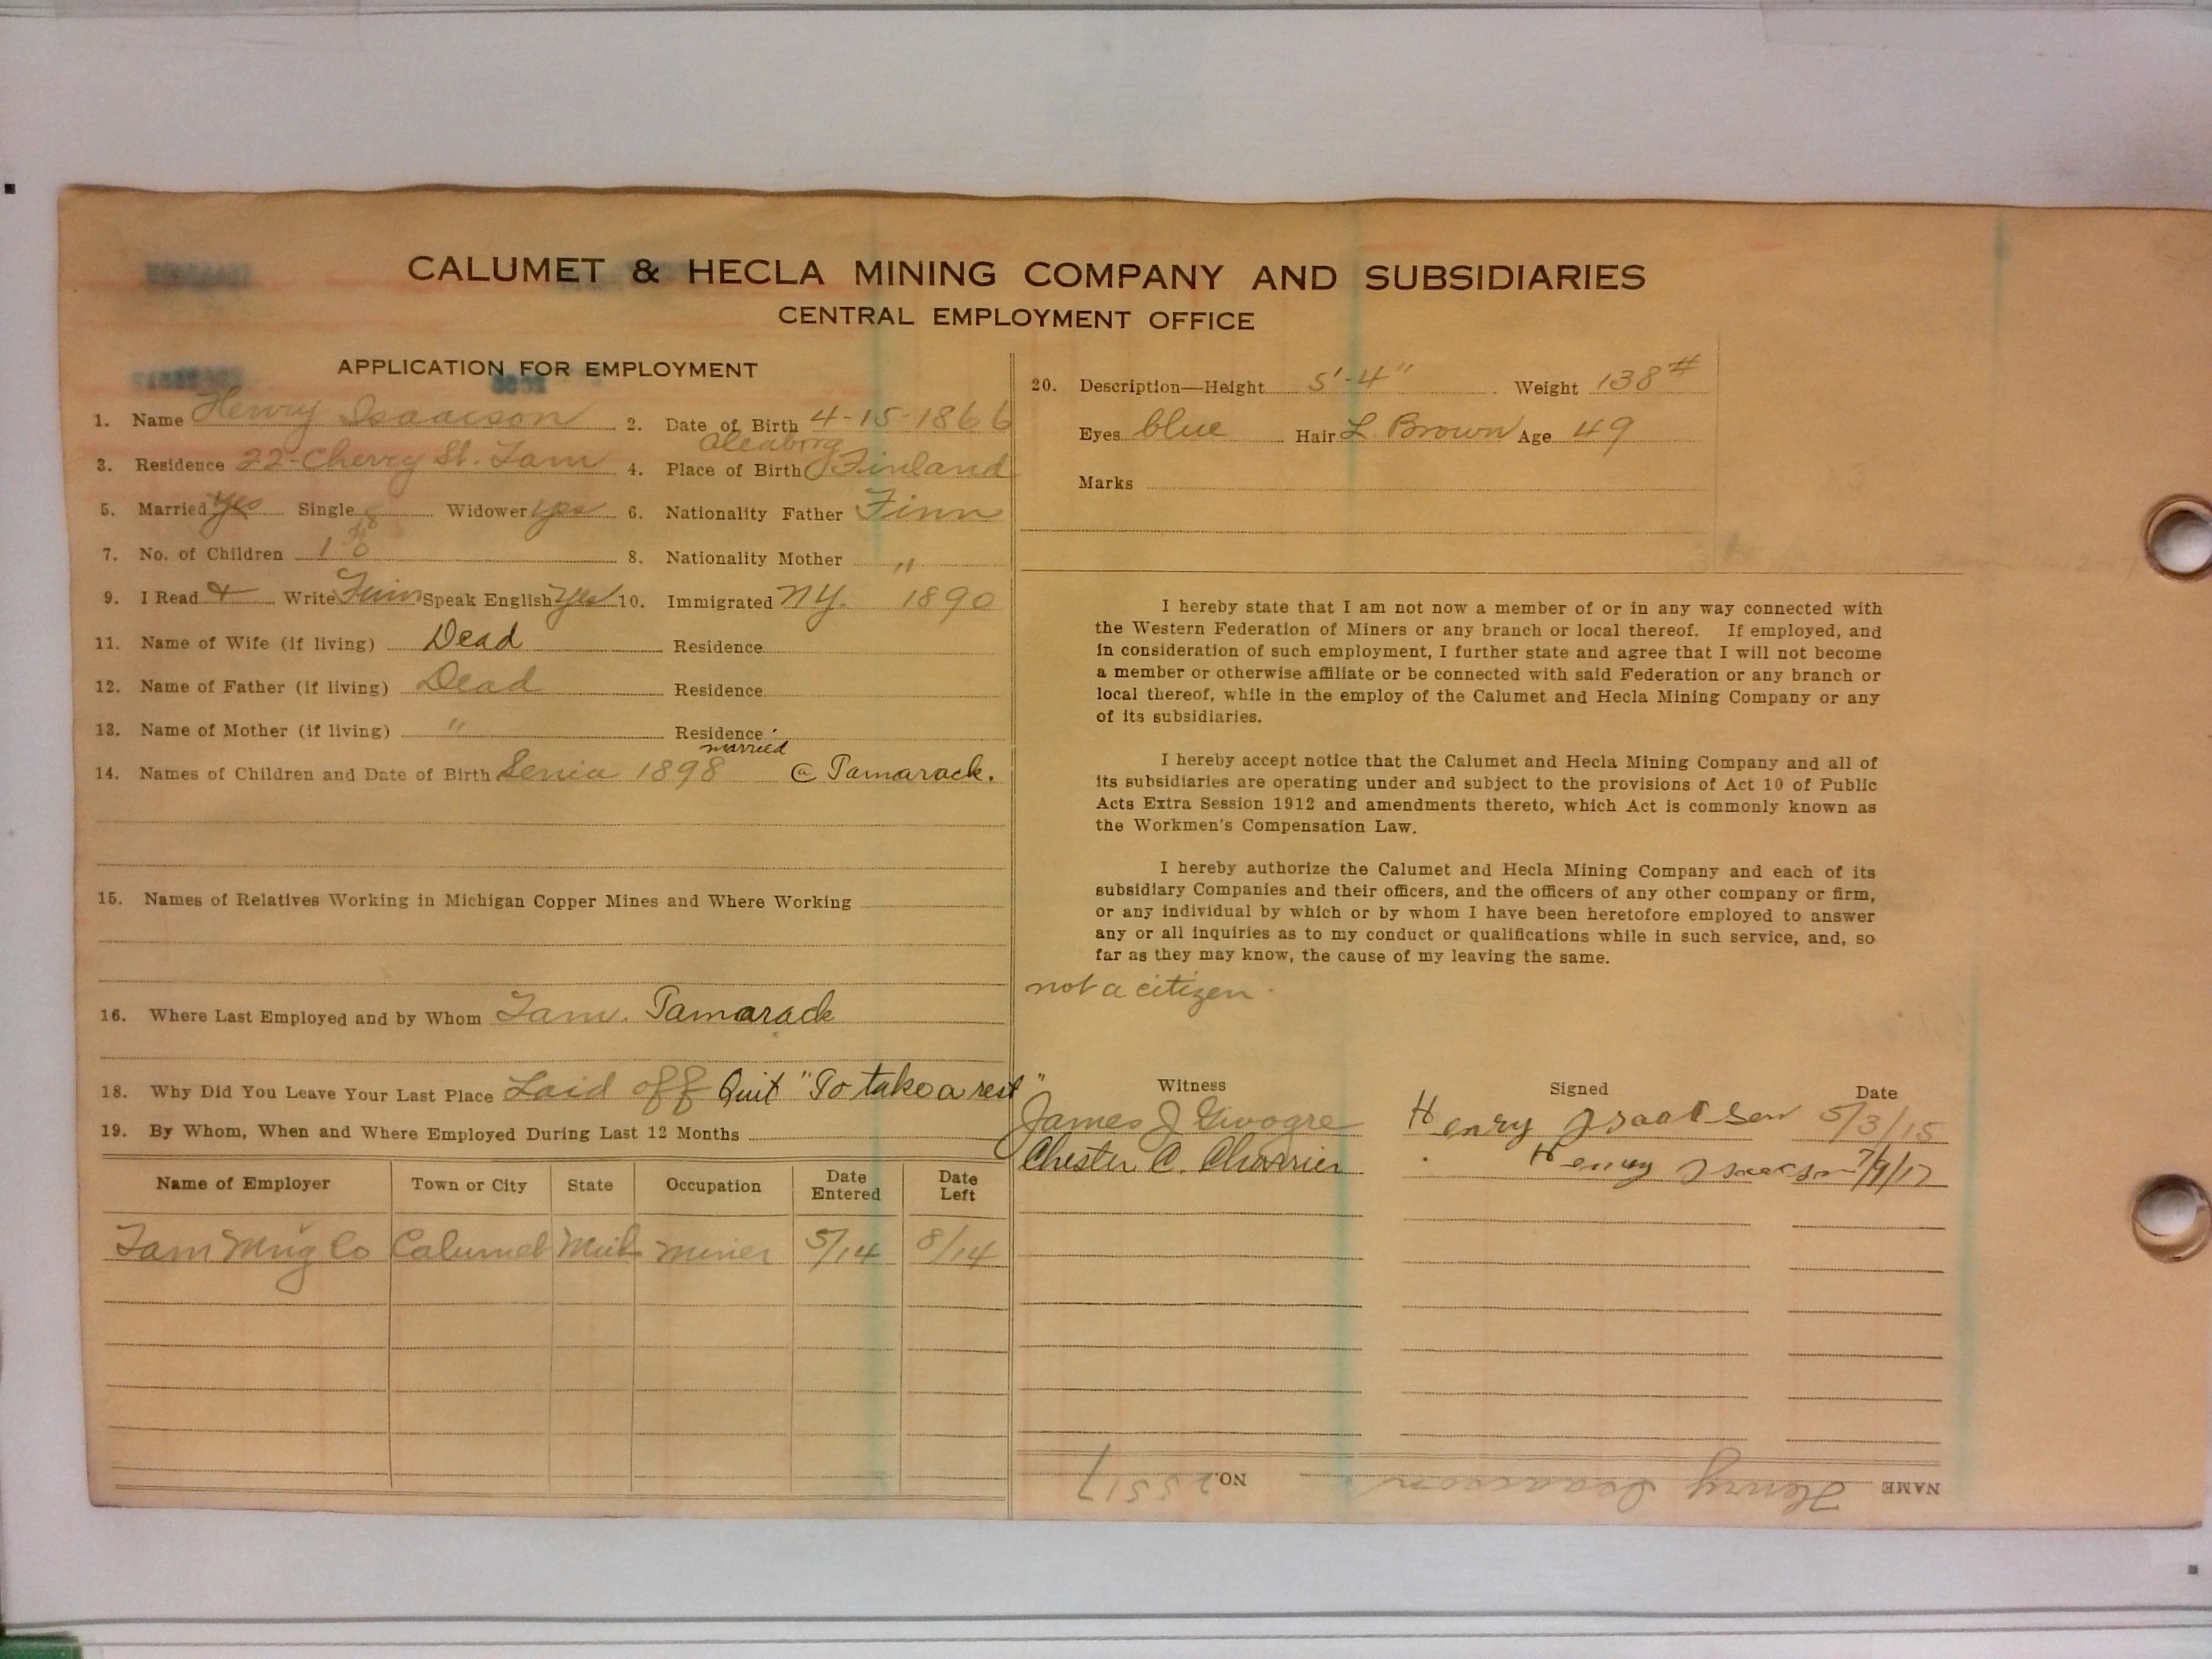 CALUMET & HECLA MINING COMPANY AND SUBSIDIARIES
CENTRAL EMPLOYMENT OFFICE
APPLICATION FOR EMPLOYMENT
1. Name Henry Isaacson 2. Date of Birth 4-15-1866
3. Residence 22-Cherry St. Tam 4. Place of Birth Oleaborg Finland
5. Married yes Single Widower yes 6. Nationality Father Finn
7. No. of Children 1 8. Nationality Mother "
9. I Read + Write Finn Speak English yes 10. Immigrated NY. 1890
11. Name of Wife (if living) Dead Residence
12. Name of Father (if living) Dead Residence
13. Name of Mother (if living) " Residence
14. Names of Children and Date of Birth Senia 1898 married @ Tamarack.
15. Names of Relatives Working in Michigan Copper Mines and Where Working
16. Where Last Employed and by Whom Tam. Tamarack
18. Why Did You Leave Your Last Place Laid off Quit "To take a rest"
19. By Whom, When and Where Employed During Last 12 Months
Name of Employer Town or City State Occupation Date Entered Date Left
Tam Mng Co Calumet Mich miner 5/14 8/14
20. Description—Height 5'-4" Weight 138#
Eyes blue Hair L. Brown Age 49
Marks
I hereby state that I am not now a member of or in any way connected with
the Western Federation of Miners or any branch or local thereof. If employed, and
in consideration of such employment, I further state and agree that I will not become
a member or otherwise affiliate or be connected with said Federation or any branch or
local thereof, while in the employ of the Calumet and Hecla Mining Company or any
of its subsidiaries.
I hereby accept notice that the Calumet and Hecla Mining Company and all of
its subsidiaries are operating under and subject to the provisions of Act 10 of Public
Acts Extra Session 1912 and amendments thereto, which Act is commonly known as
the Workmen's Compensation Law.
I hereby authorize the Calumet and Hecla Mining Company and each of its
subsidiary Companies and their officers, and the officers of any other company or firm,
or any individual by which or by whom I have been heretofore employed to answer
any or all inquiries as to my conduct or qualifications while in such service, and, so
far as they may know, the cause of my leaving the same.
not a citizen
Witness Signed Date
James J Givogre Henry Isaacson 5/3/15
Chester C. Charrier Henry Isaacson 7/9/17
NAME Henry Isaacson NO. 25517